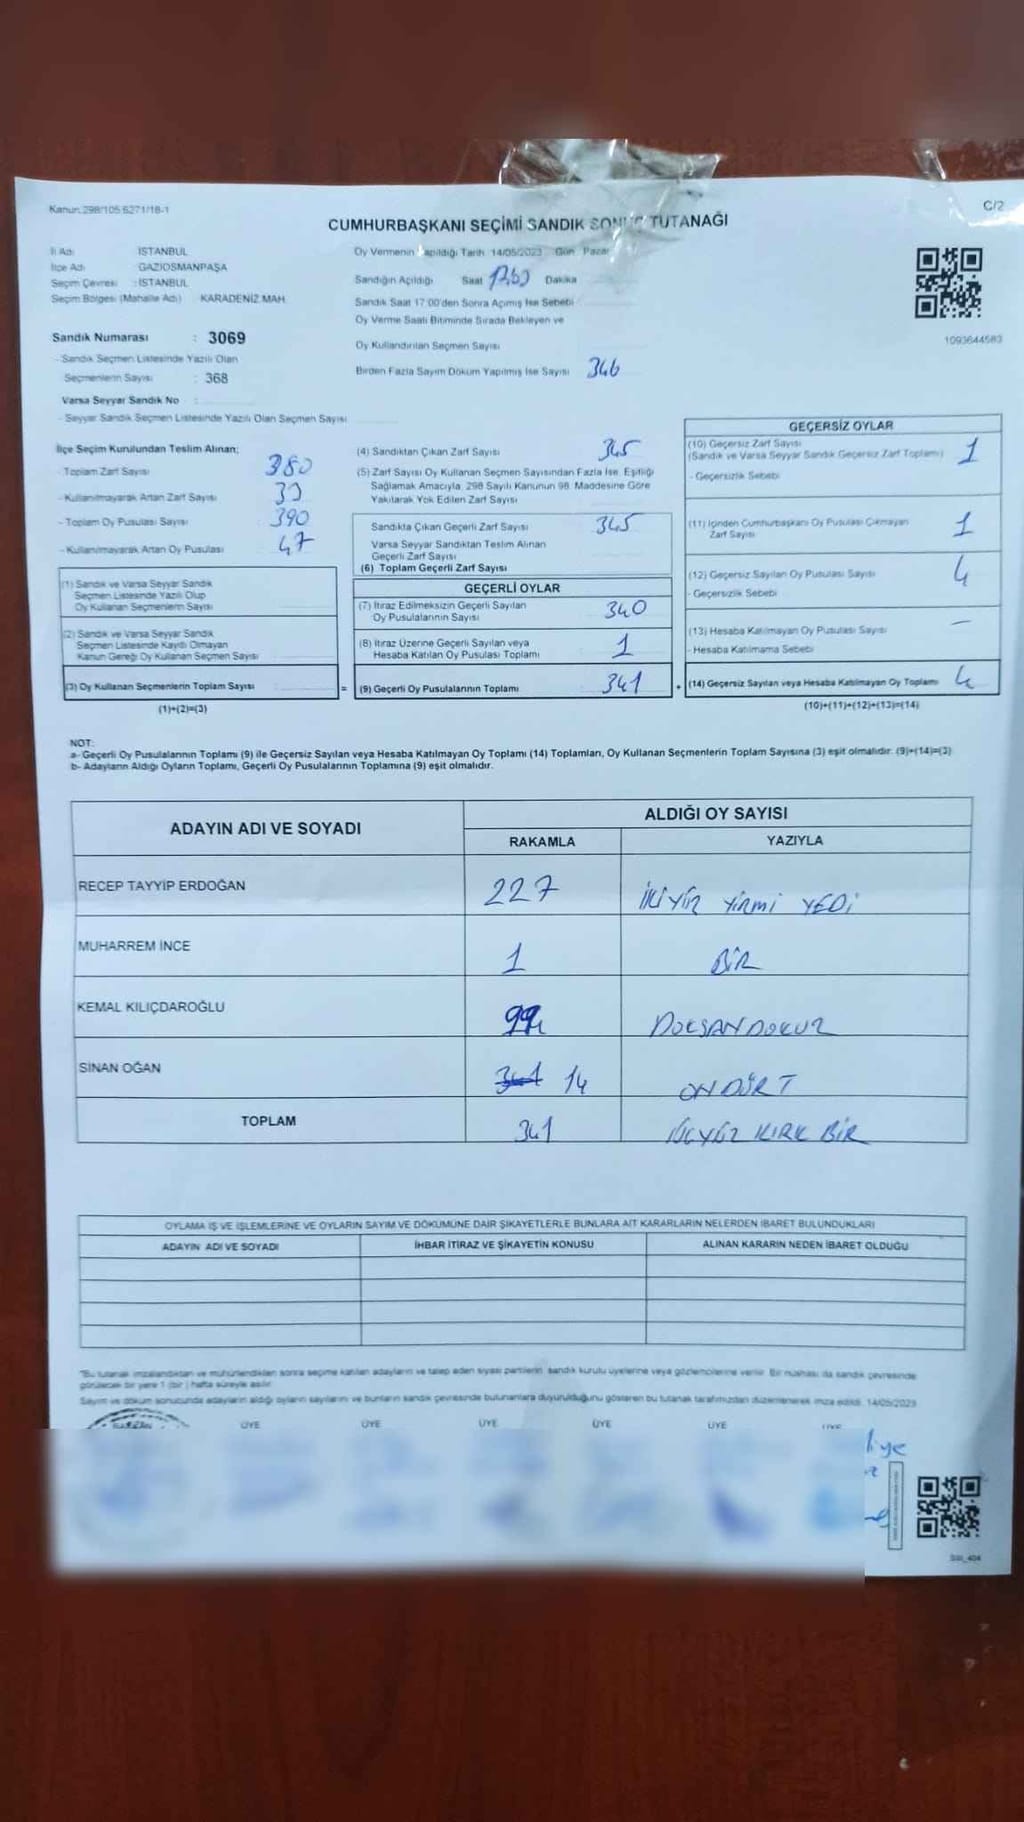 Kanun: 298/105 6271/18-1
C/2
CUMHURBAŞKANI SEÇİMİ SANDIK SONUÇ TUTANAĞI
İl Adı : İSTANBUL
İlçe Adı : GAZİOSMANPAŞA
Seçim Çevresi : İSTANBUL
Seçim Bölgesi (Mahalle Adı) KARADENİZ MAH.
Sandık Numarası : 3069
- Sandık Seçmen Listesinde Yazılı Olan
Seçmenlerin Sayısı : 368
Varsa Seyyar Sandık No :
- Seyyar Sandık Seçmen Listesinde Yazılı Olan Seçmen Sayısı
Oy Vermenin Yapıldığı Tarih 14/05/2023 Gün Pazar
Sandığın Açıldığı Saat Dakika
Sandık Saat 17:00'den Sonra Açılmış İse Sebebi
Oy Verme Saati Bitiminde Sırada Bekleyen ve
Oy Kullandırılan Seçmen Sayısı
Birden Fazla Sayım Döküm Yapılmış İse Sayısı 346
1093644583
İlçe Seçim Kurulundan Teslim Alınan;
- Toplam Zarf Sayısı 380
- Kullanılmayarak Artan Zarf Sayısı
- Toplam Oy Pusulası Sayısı 390
- Kullanılmayarak Artan Oy Pusulası 47
(1) Sandık ve Varsa Seyyar Sandık
Seçmen Listesinde Yazılı Olup
Oy Kullanan Seçmenlerin Sayısı
(2) Sandık ve Varsa Seyyar Sandık
Seçmen Listesinde Kaydı Olmayan
Kanun Gereği Oy Kullanan Seçmen Sayısı
(3) Oy Kullanan Seçmenlerin Toplam Sayısı
(1)+(2)=(3)
(4) Sandıktan Çıkan Zarf Sayısı 345
(5) Zarf Sayısı Oy Kullanan Seçmen Sayısından Fazla İse, Eşitliği
Sağlamak Amacıyla, 298 Sayılı Kanunun 98. Maddesine Göre
Yakılarak Yok Edilen Zarf Sayısı
Sandıkta Çıkan Geçerli Zarf Sayısı 345
Varsa Seyyar Sandıktan Teslim Alınan
Geçerli Zarf Sayısı
(6) Toplam Geçerli Zarf Sayısı
GEÇERLİ OYLAR
(7) İtiraz Edilmeksizin Geçerli Sayılan
Oy Pusulalarının Sayısı 340
(8) İtiraz Üzerine Geçerli Sayılan veya
Hesaba Katılan Oy Pusulası Toplamı 1
= (9) Geçerli Oy Pusulalarının Toplamı 341
GEÇERSİZ OYLAR
(10) Geçersiz Zarf Sayısı
(Sandık ve Varsa Seyyar Sandık Geçersiz Zarf Toplamı) 1
- Geçersizlik Sebebi
(11) İçinden Cumhurbaşkanı Oy Pusulası Çıkmayan
Zarf Sayısı 1
(12) Geçersiz Sayılan Oy Pusulası Sayısı 4
- Geçersizlik Sebebi
(13) Hesaba Katılmayan Oy Pusulası Sayısı –
- Hesaba Katılmama Sebebi
+ (14) Geçersiz Sayılan veya Hesaba Katılmayan Oy Toplamı 4
(10)+(11)+(12)+(13)=(14)
NOT:
a- Geçerli Oy Pusulalarının Toplamı (9) ile Geçersiz Sayılan veya Hesaba Katılmayan Oy Toplamı (14) Toplamları, Oy Kullanan Seçmenlerin Toplam Sayısına (3) eşit olmalıdır. (9)+(14)=(3)
b- Adayların Aldığı Oyların Toplamı, Geçerli Oy Pusulalarının Toplamına (9) eşit olmalıdır.
ADAYIN ADI VE SOYADI
ALDIĞI OY SAYISI
RAKAMLA YAZIYLA
RECEP TAYYİP ERDOĞAN 227 İKİYÜZ YİRMİ YEDİ
MUHARREM İNCE 1 BİR
KEMAL KILIÇDAROĞLU 99 DOKSANDOKUZ
SİNAN OĞAN 341 14 ONDÖRT
TOPLAM 341 ÜÇYÜZ KIRK BİR
OYLAMA İŞ VE İŞLEMLERİNE VE OYLARIN SAYIM VE DÖKÜMÜNE DAİR ŞİKAYETLERLE BUNLARA AİT KARARLARIN NELERDEN İBARET BULUNDUKLARI
ADAYIN ADI VE SOYADI İHBAR İTİRAZ VE ŞİKAYETİN KONUSU ALINAN KARARIN NEDEN İBARET OLDUĞU
*Bu tutanak imzalandıktan ve mühürlendikten sonra seçime katılan adayların ve talep eden siyasi partilerin sandık kurulu üyelerine veya gözlemcilerine verilir. Bir nüshası da sandık çevresinde
görülecek bir yere 1 (bir) hafta süreyle asılır.
Sayım ve döküm sonucunda adayların aldığı oyların sayılarını ve bunların sandık çevresinde bulunanlara duyurulduğunu gösteren bu tutanak tarafımızdan düzenlenerek imza edildi. 14/05/2023
ÜYE ÜYE ÜYE ÜYE ÜYE ÜYE